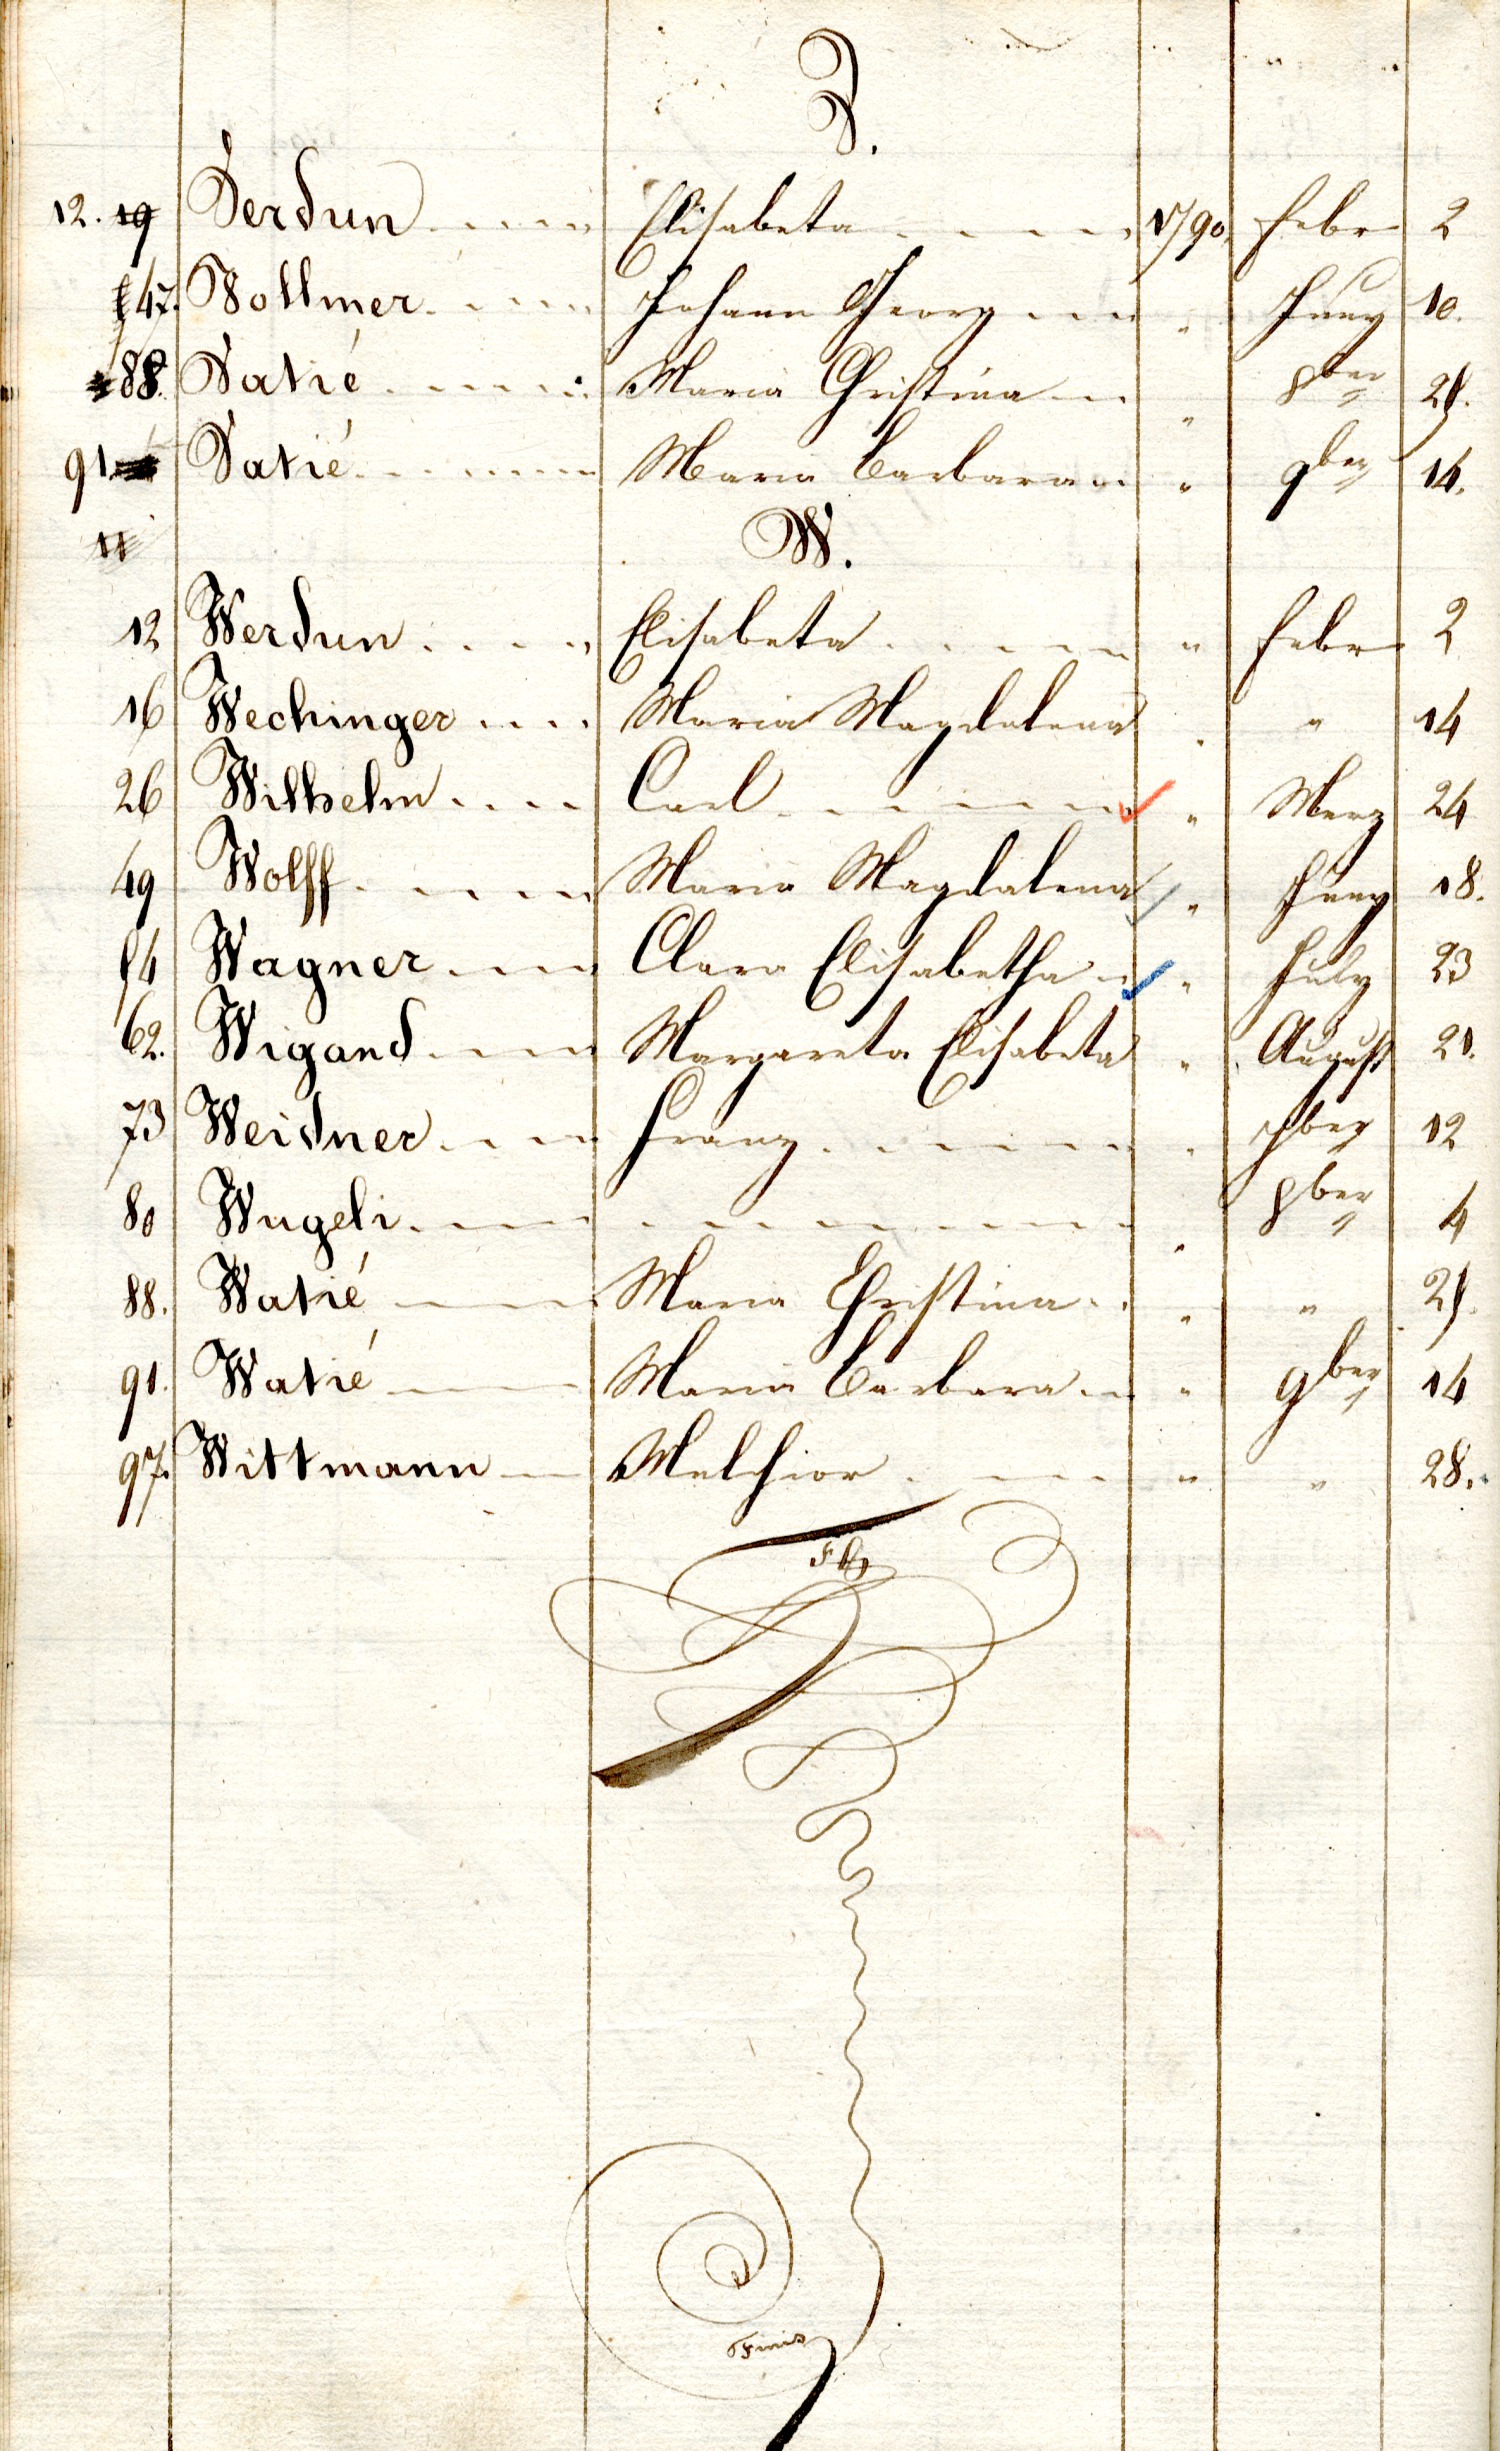 V.
12. 19 Verdun Elisabeta 1790. Febr 2
47. Vollmer Johann Georg " Juny 10.
88. Vatié Maria Christina " 8ber 25.
91 Vatié Maria Barbara " 9ber 14.
11
W.
12 Werdun Elisabeta " Febr 2
16 Wechinger Maria Magdalena " " 14
26 Wilhelm Carl " Merz 24
49 Wolff Maria Magdalena " Juny 18.
54 Wagner Clara Elisabetha " July 23
62. Wigand Margareta Elisabeta " August 21.
73 Weidner Franz " 7ber 12
80 Wugeli " 8ber 4
88. Watié Maria Christina " " 25.
91. Watié Maria Barbara " 9ber 14
97. Wittmann Melchior " " 28.
Finis